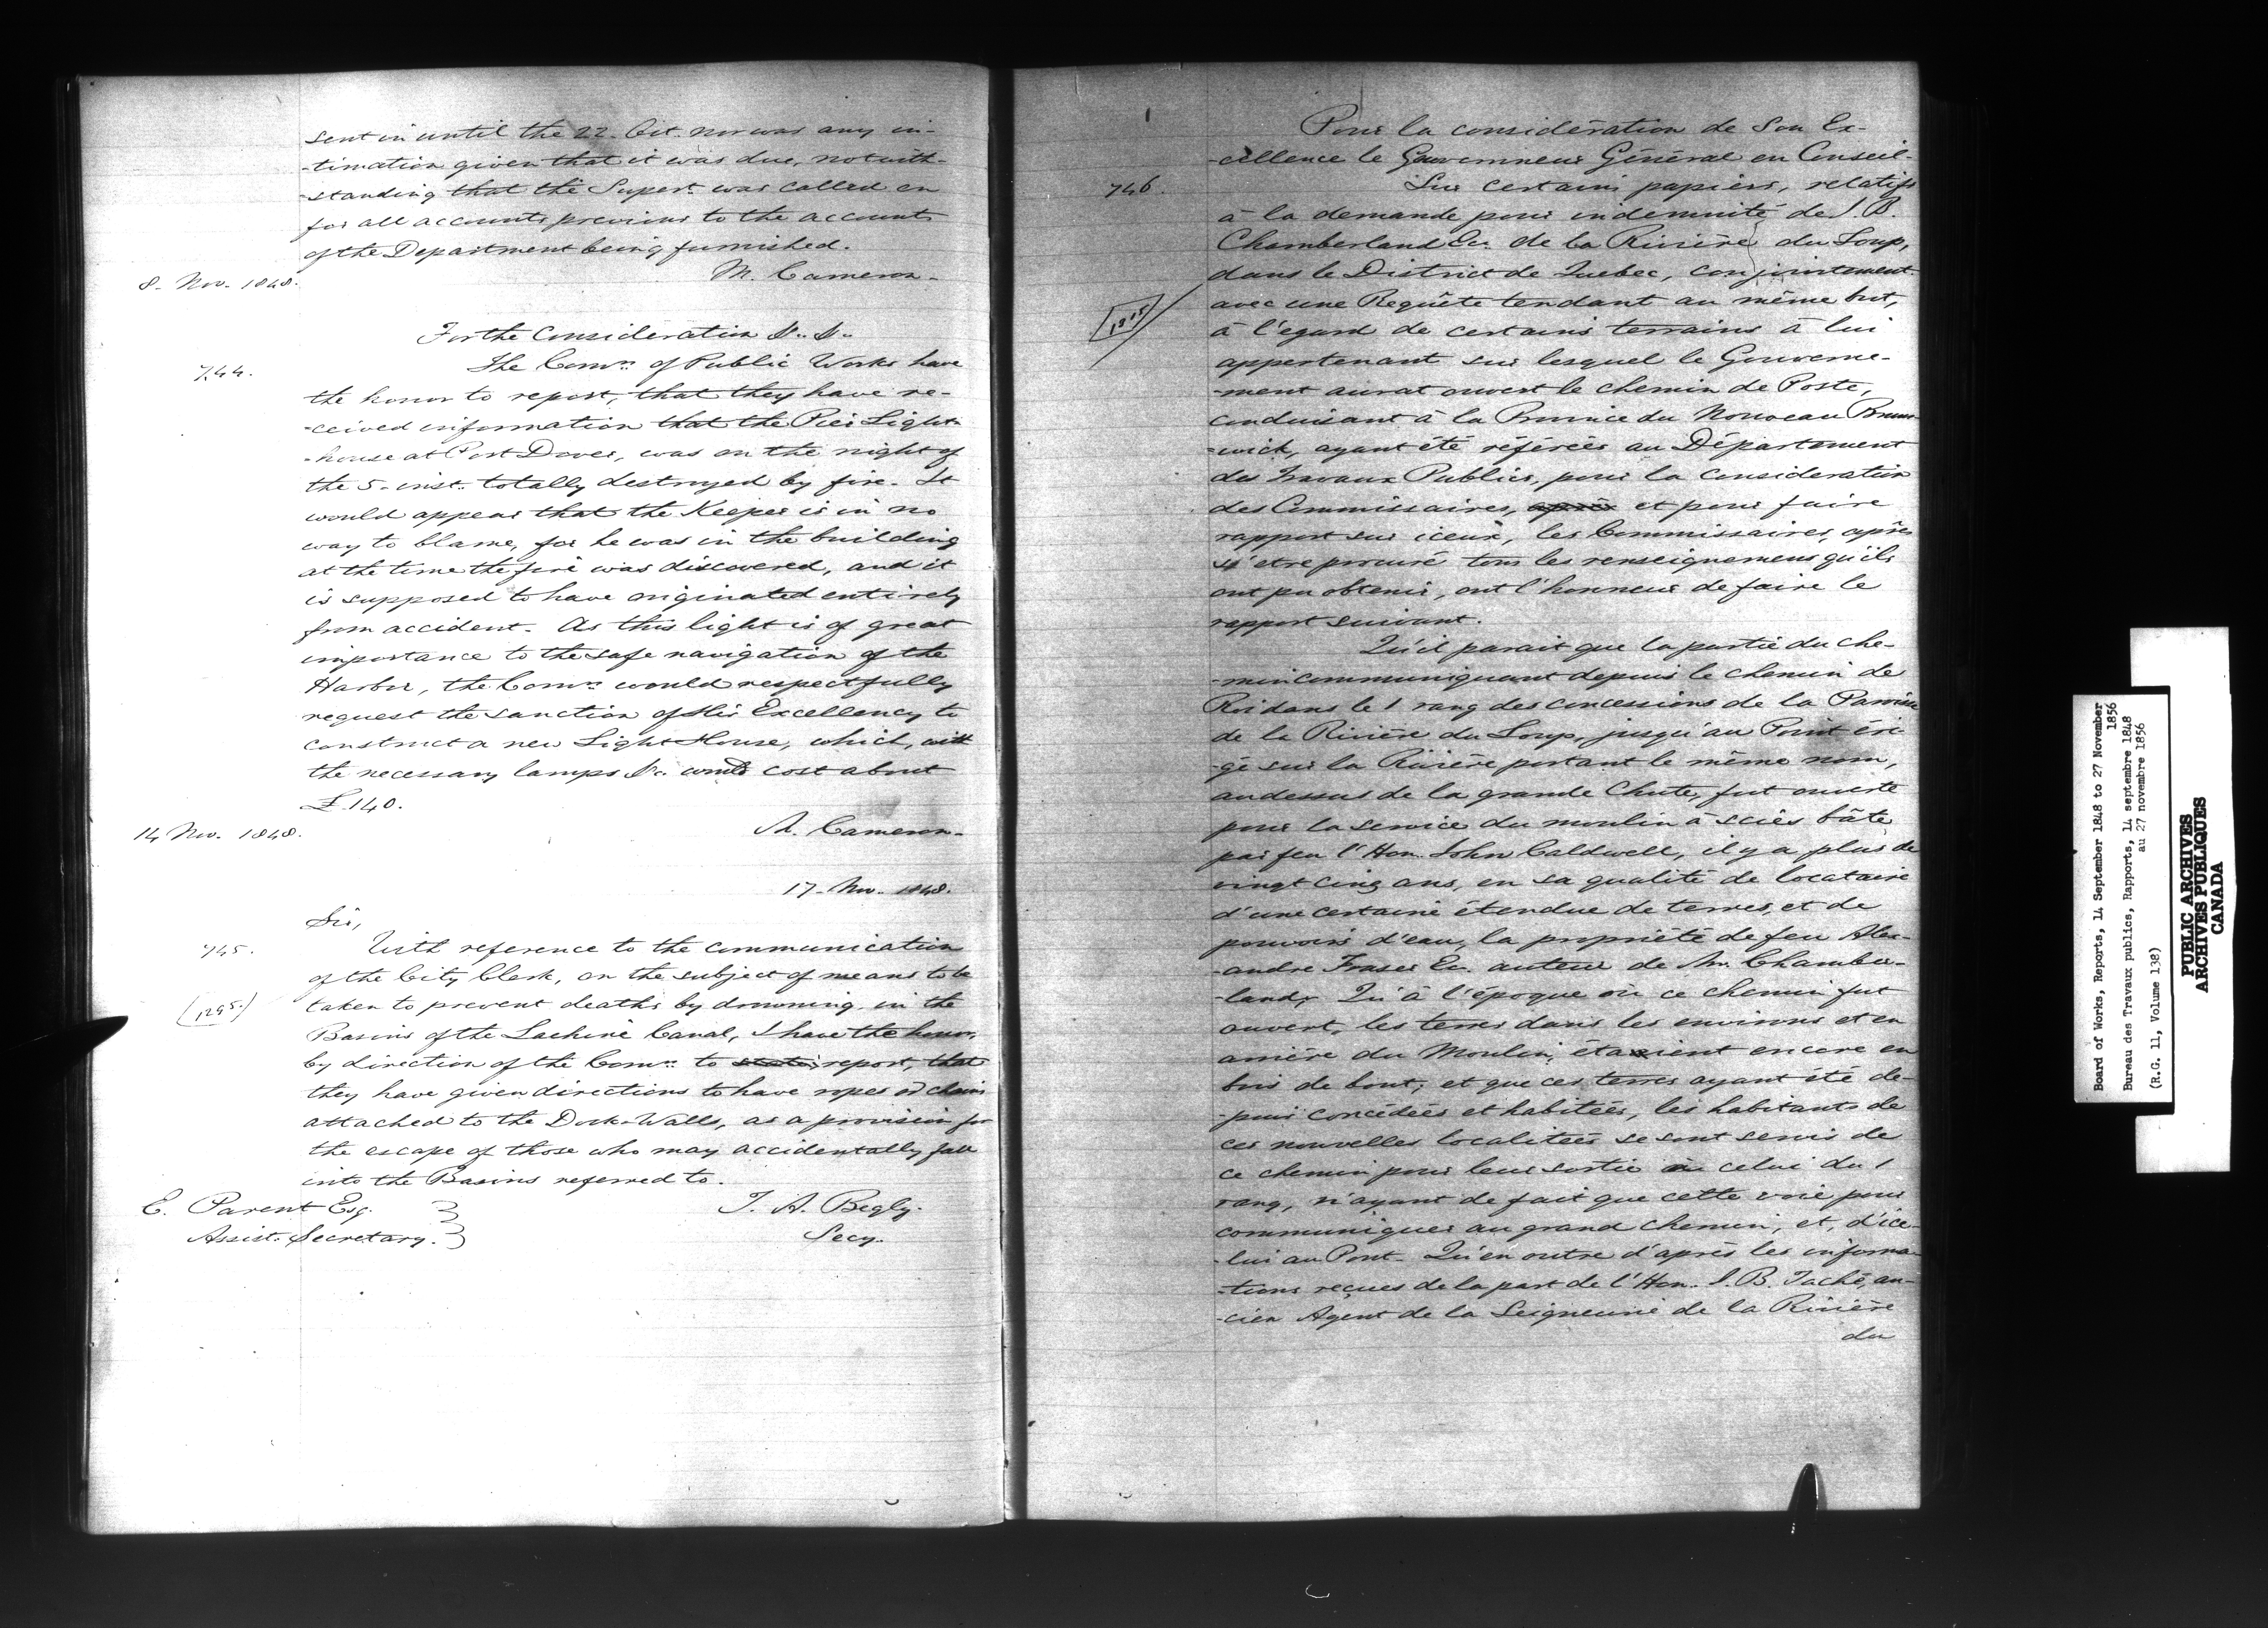 sent in until the 22. Oct. nor was any in-
-timation given that it was due, notwith-
-standing that the Supert. was called on
for all accounts previous to the accounts
of the Department being furnished.
M. Cameron.
8. Nov. 1848.
For the Consideration &c. &c.
744.
The Comrs. of Public Works have
the honor to report, that they have re-
-ceived information that the Pier Light-
-house at Port Dover, was on the night of
the 5. inst. totally destroyed by fire. It
would appear that the Keeper is in no
way to blame, for he was in the building
at the time the fire was discovered, and it
is supposed to have originated entirely
from accident. As this light is of great
importance to the safe navigation of the
Harbor, the Comrs. would respectfully
request the sanction of His Excellency to
construct a new Light House, which, with
the necessary lamps &c. would cost about
£.140.
14 Nov. 1848.
M. Cameron.
17. Nov. 1848.
Sir,
745.
With reference to the communication
of the City Clerk, on the subject of means to be
(1295.)
taken to prevent deaths by drowning in the
Basins of the Lachine Canal, I have the honor,
by direction of the Comrs. to report, that
they have given directions to have ropes or chains
attached to the Dock-Walls, as a provision for
the escape of those who may accidentally fall
into the Basins referred to.
E. Parent Esq.
Assist. Secretary.
T. A. Begly.
Secy.
Pour la considération de Son Ex-
-cellence le Gouverneur Général en Conseil.
746.
Sur certains papiers, relatifs
à la demande pour indemnité de J. B.
Chamberland Ecr. de la Rivière du Loup,
dans le District de Quebec, conjointement
avec une Requête tendant au même but,
à l'egard de certains terrains à lui
appertenant sur lesquel le Gouverne-
-ment aurat ouvert le chemin de Poste,
conduisant à la Province du Nouveau Bruns-
-wick, ayant été référées au Département
des Travaux Publics, pour la consideration
des Commissaires, après et pour faire
rapport sur iceux, les Commissaires, après
s'etre procuré tous les renseignemens qu'ils
ont pu obtenir, ont l'honneur de faire le
rapport suivant.
Qu'il parait que la partie du che-
-min communiquant depuis le chemin de
Roi dans le 1 rang des concessions de la Paroisse
de la Rivière du Loup, jusqu'au Point éri-
-gé sur la Rivière portant le même nom,
audessus de la grande Chute, fut ouverte
pour la service du moulin à scies bâte
par feu l'Hon. John Caldwell, il y a plus de
vingt cinq ans, en sa qualité de locataire
d'une certaine étendue de terres, et de
pouvoirs d'eau, la propriété de feu Alex-
-andre Fraser Ecr. auteur de Mr. Chamber-
-land, Qu'à l'époque où ce chemin fut
ouvert, les terres dans les environs et en
arrière du Moulin, étaient encore en
bois de bout; et que ces terres ayant été de-
-puis concédées et habitées, les habitants de
ces nouvelles localitées se sont servis de
ce chemin pour leur sortie celui du 1
rang, n'ayant de fait que cette voie pour
communiquer au grand chemin, et, d'ice-
-lui au Pont. Qu'en outre d'après les informa-
-tions reçues de la part de l'Hon. J. B. Taché, an-
-cien Agent de la Seigneurie de la Rivière
du
Board of Works, Reports, 14 September 1848 to 27 November
1856
Bureau des Travaux publics, Rapports, 14 septembre 1848
au 27 novembre 1856
(R.G. 11, Volume 138)
PUBLIC ARCHIVES
ARCHIVES PUBLIQUES
CANADA